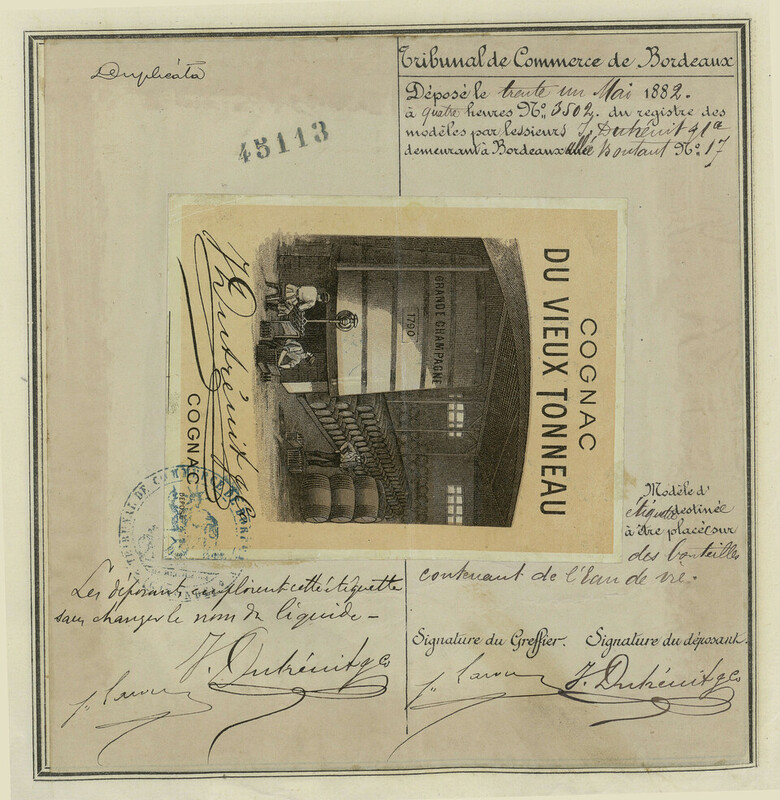 Duplicata
45113
Tribunal de Commerce de Bordeaux
Déposé le trente un Mai 1882.
à quatre heures N.º 3502. du registre des
modèles par les sieurs J. Dutrénit & Cie
demeurant à Bordeaux allée Boutaut N.º 17
COGNAC
DU VIEUX TONNEAU
GRANDE CHAMPAGNE
1790
J Dutrénit & Co
COGNAC
TRIBUNAL DE COMMERCE
Modèle d'
étiquette destinée
à être placée sur
des bouteilles
contenant de l'Eau de vie.
Les déposants emploient cette étiquette
sans changer le nom du liquide -
Signature du Greffier. Signature du déposant.
J. Dutrénit & Co
J. Dutrénit & Co